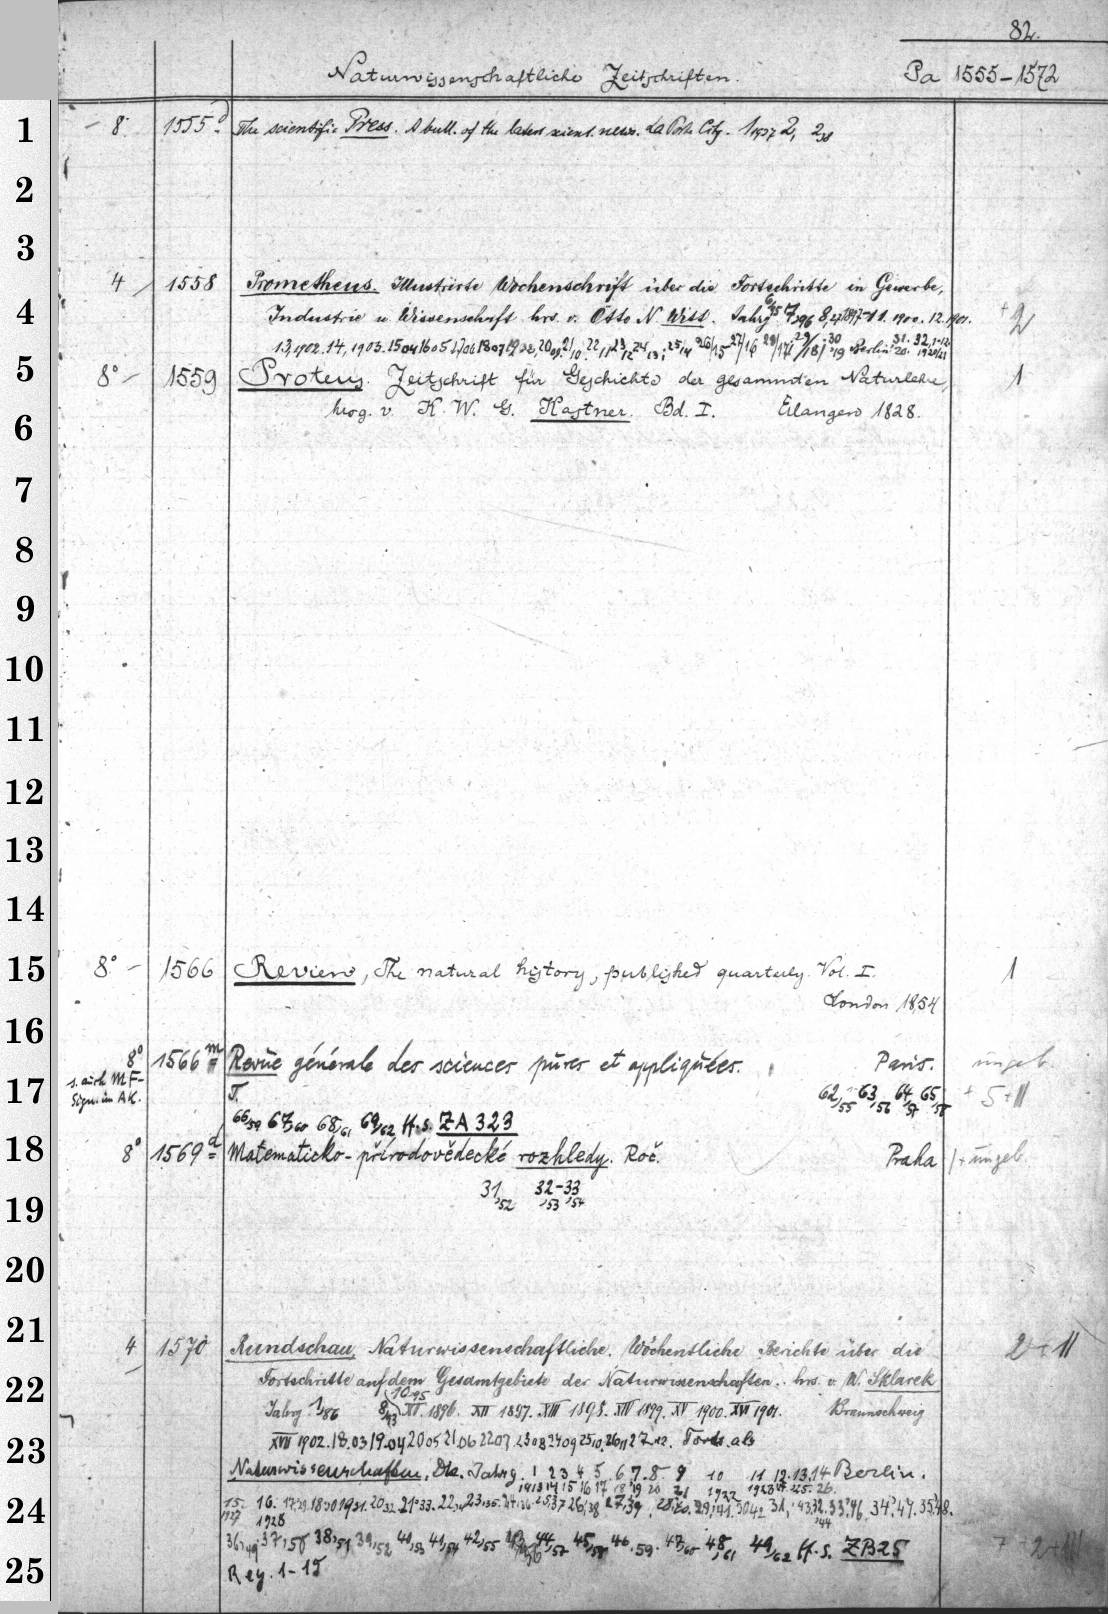 82.
Naturwissenschaftliche Zeitschriften. Pa 1555–1572
1 8° 1555 d The scientific Press. A bull. of the latest scient. news. La Porte City. 1,1937 2, 2,38
2
3
4 1558 Prometheus. Illustrirte Wochenschrift über die Fortschritte in Gewerbe,
4 Industrie u. Wissenschaft hrs. v. Otto N. Witt. Jahrg. 7,1896 8, 1897–11. 1900. 12. 1901. + 2
13,1902. 14,1903. 15 04 16 05 17 06 18 07 19 08, 20 09, Berlin 1920/21
5 8° – 1559 Proteus. Zeitschrift für Geschichte der gesammten Naturlehre, 1
6 hrsg. v. K. W. G. Kastner. Bd. I. Erlangen 1828.
7
8
9
10
11
12
13
14
15 8° – 1566 Review, The natural history, published quarterly. Vol. I. 1
London 1854
16
8° 1566 m Revue générale des sciences pures et appliquées. Paris. ungeb.
17 s. auch MF-Sign. im AK. T. 62,55 63,56 64,57 65,58 + 5 + II
66,59 67,60 68,61 69,62 H.s. ZA 323
18 8° 1569 d Matematicko-přírodovědecké rozhledy. Roč. Praha + ungeb.
19 31,52 32–33 ,53 ,54
20
21 4 1570 Rundschau, Naturwissenschaftliche. Wöchentliche Berichte über die 2 + II
22 Fortschritte auf dem Gesamtgebiete der Naturwissenschaften.. hrs. v. W. Sklarek
Jahrg. 1/86 8,93 10 95 XI 1896. XII 1897. XIII 1898. XIV 1899. XV 1900. XVI 1901. Braunschweig
23 XVII 1902. 18. 03 19. 04 20 05 21 06 22 07 23 08 24 09 25 10. 26 11 27 12. Forts. als
Naturwissenschaften, Die. Jahrg. 1 2 3 4 5 6 7 8 9 10 11 12. 13. 14 Berlin.
1913 14 15 16 17 18 19 20 21 1922 1923 24. 25. 26.
24 15. 16. 17 29. 18 30 19 31. 20 32 21 33. 22 34 23 35. 24 36 25 37 26 38 27 39 28 40. 29 41. 30 42 31, 43 32. 33 46. 34 47. 35 48.
1927 1928 44
36,49 37,50 38,51 39,52 40,53 41,54 42,55 43,56 44,57 45,58 46,59. 47,60 48,61 49,62 H.s. ZB 25
25 Reg. 1–15